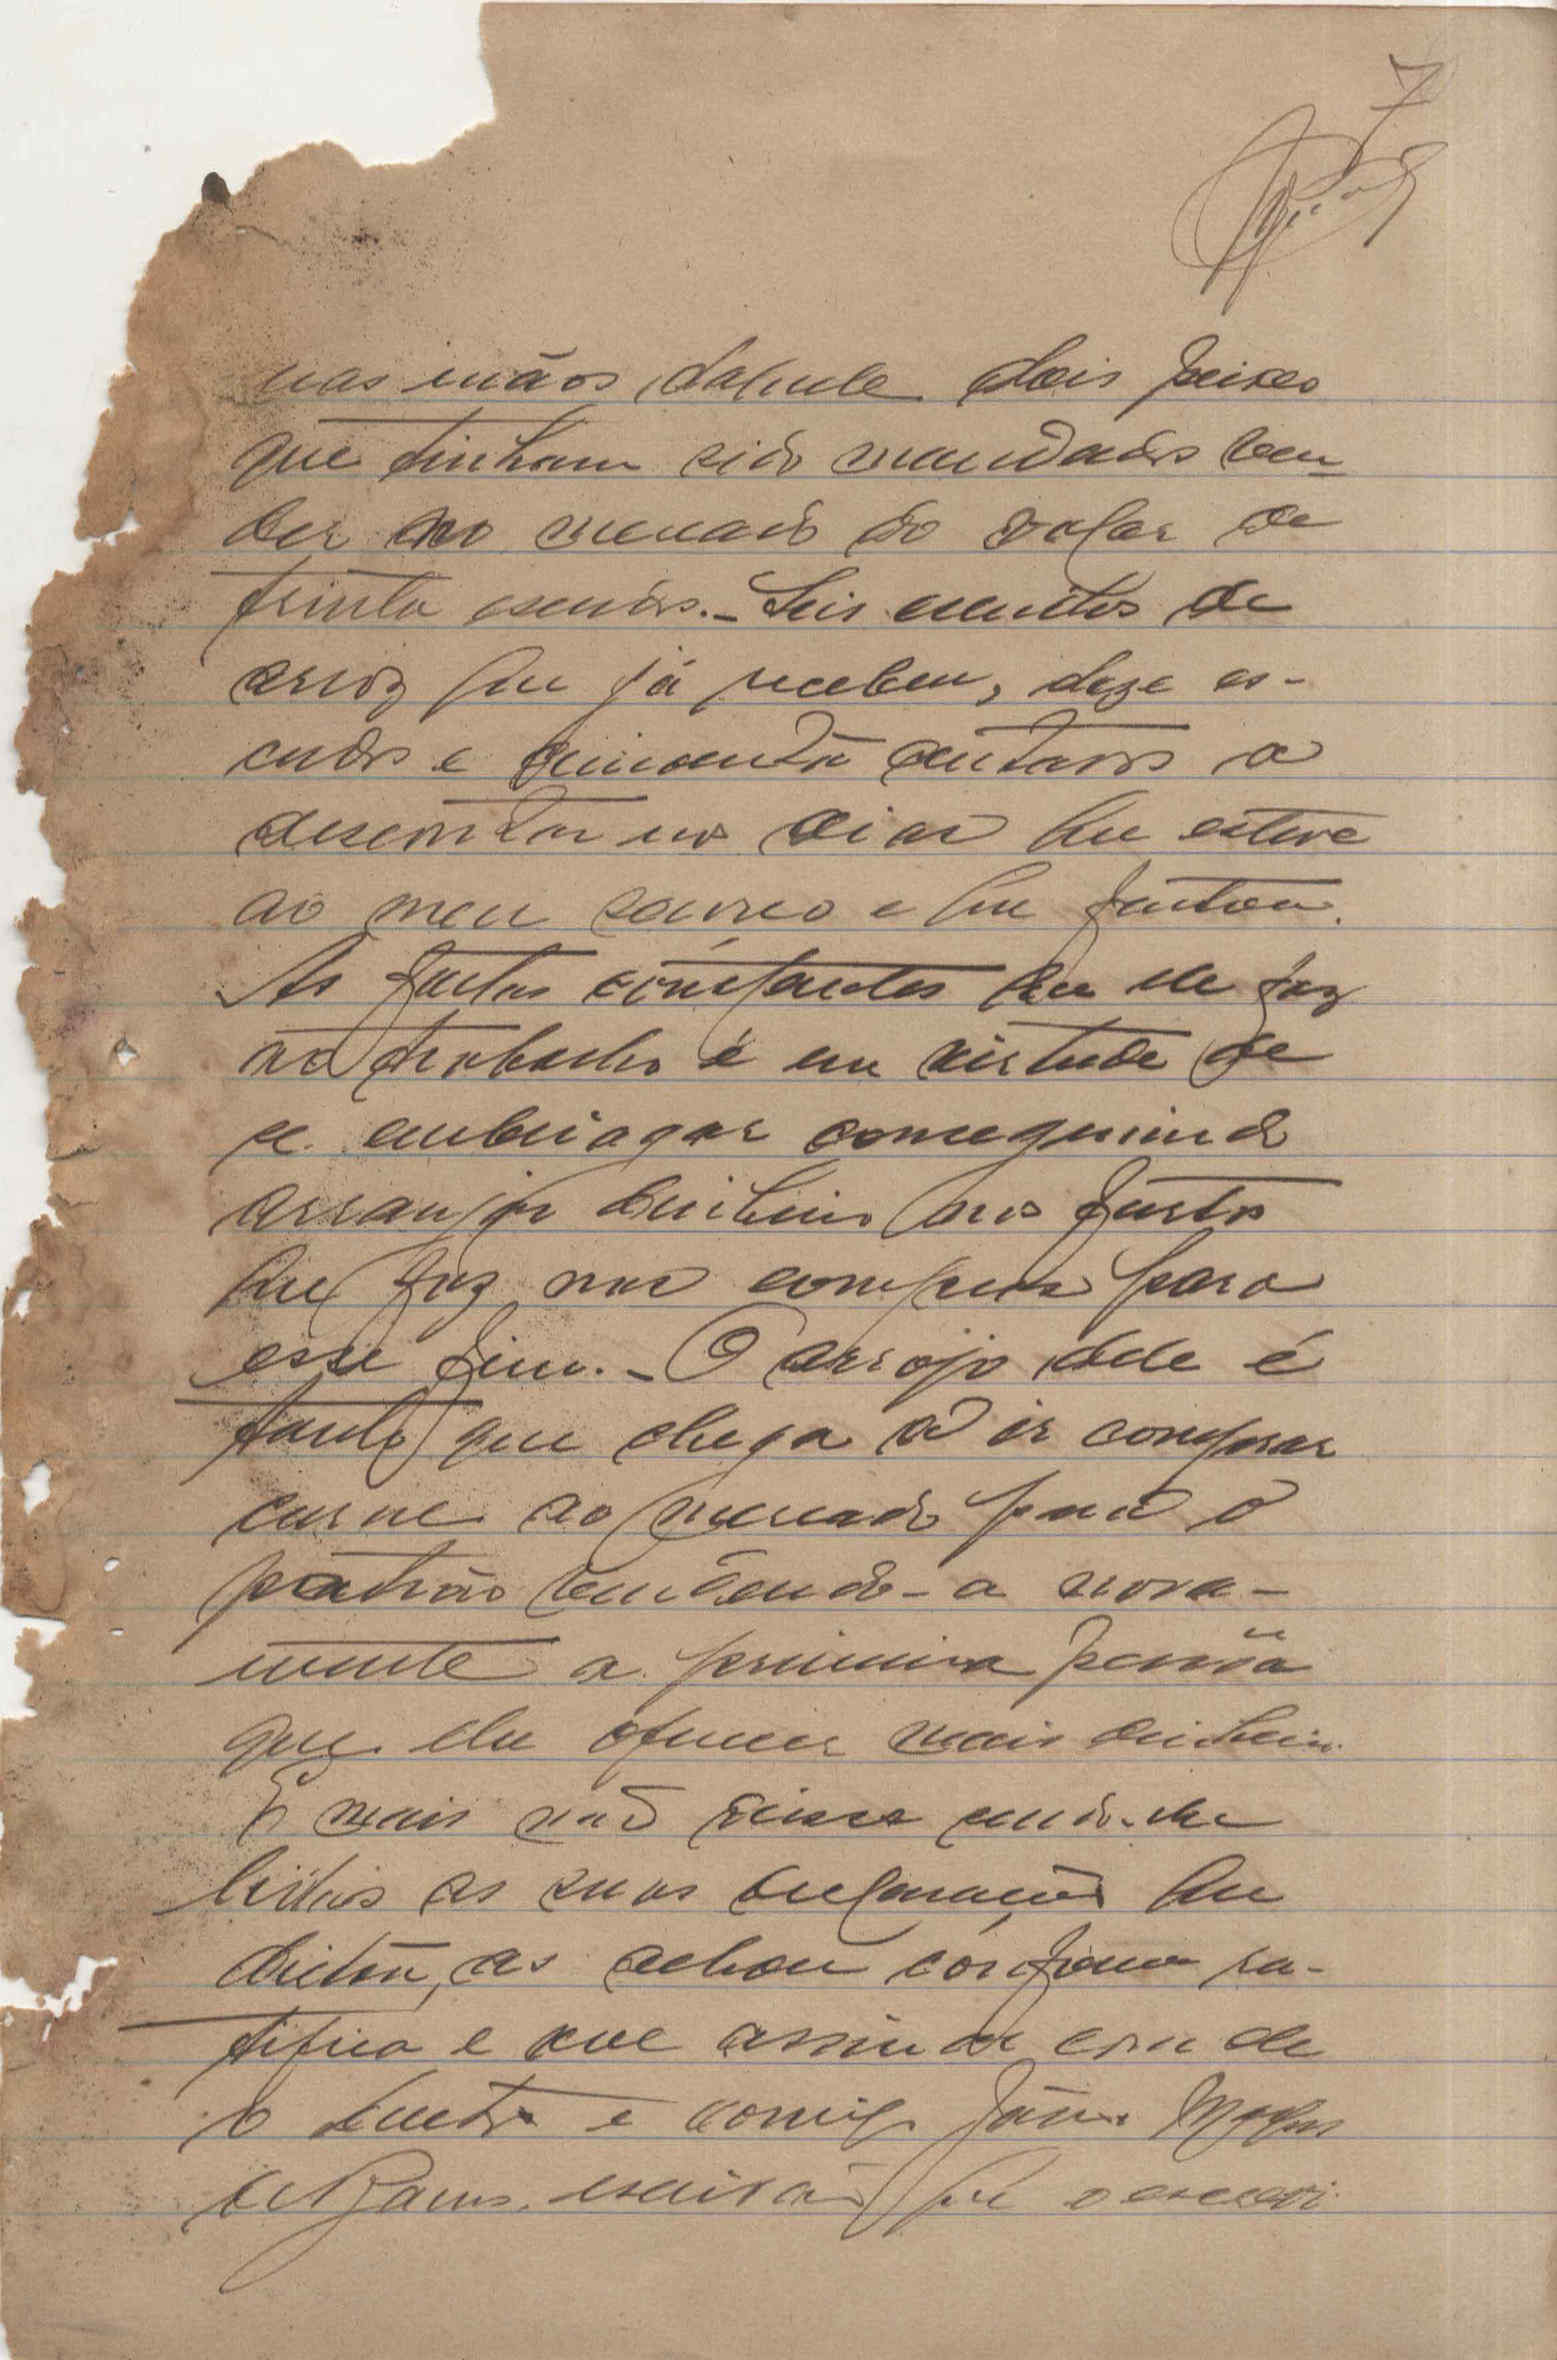 7
nas mãos daquele dois peixes
que tinham sido mandados ven-
der no mercado do valor de
trinta escudos. - Seis escudos de
arroz que já recebeu, doze es-
cudos e cincoenta centavos a
descontar nos dias que esteve
ao meu serviço e que faltou.
As faltas constantes que ele faz
ao trabalho é em virtude de
se embriagar conseguindo
arranjar dinheiro nos furtos
que faz nas compras para
esse fim. - O arrojo dele é
tanto que chega a ir comprar
carne ao mercado para o
patrão vendendo-a nova-
mente a primeira pessoa
que lhe oferecer mais dinheiro.
E mais não disse sendo-lhe
lidas as suas declarações que
dictou, as achou conforme ra-
tifica e vae assinar com ele
o e comigo
escrivão que o escrevi